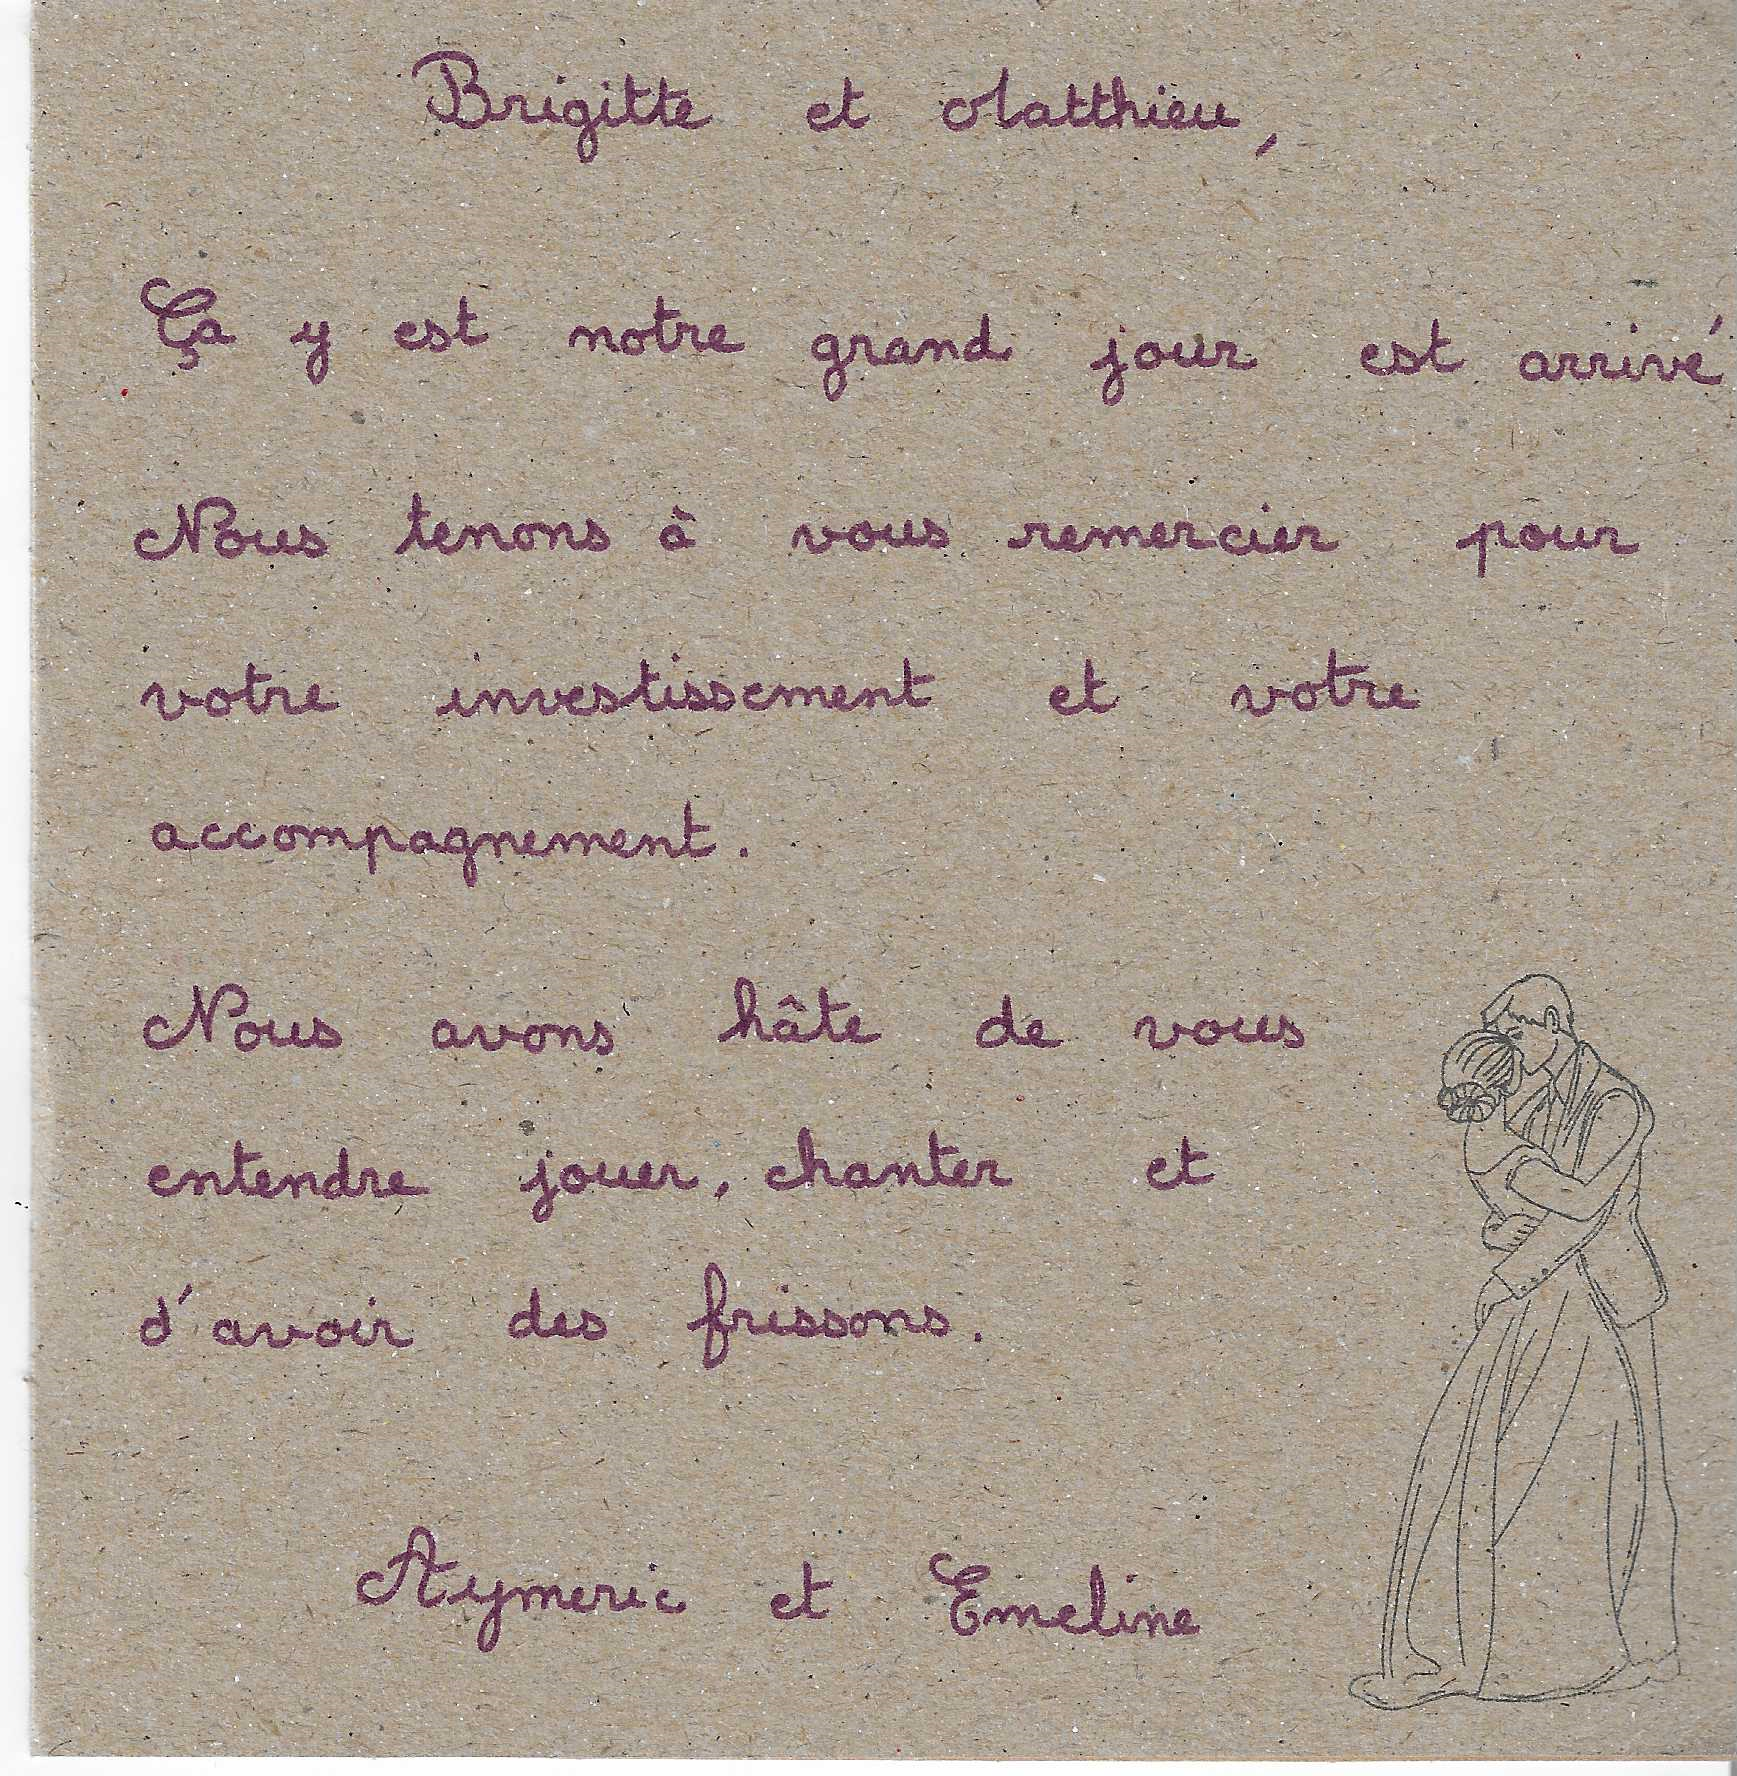 Brigitte et Matthieu,
Ça y est notre grand jour est arrivé
Nous tenons à vous remercier pour
votre investissement et votre
accompagnement.
Nous avons hâte de vous
entendre jouer, chanter et
d'avoir des frissons.
Aymeric et Emeline